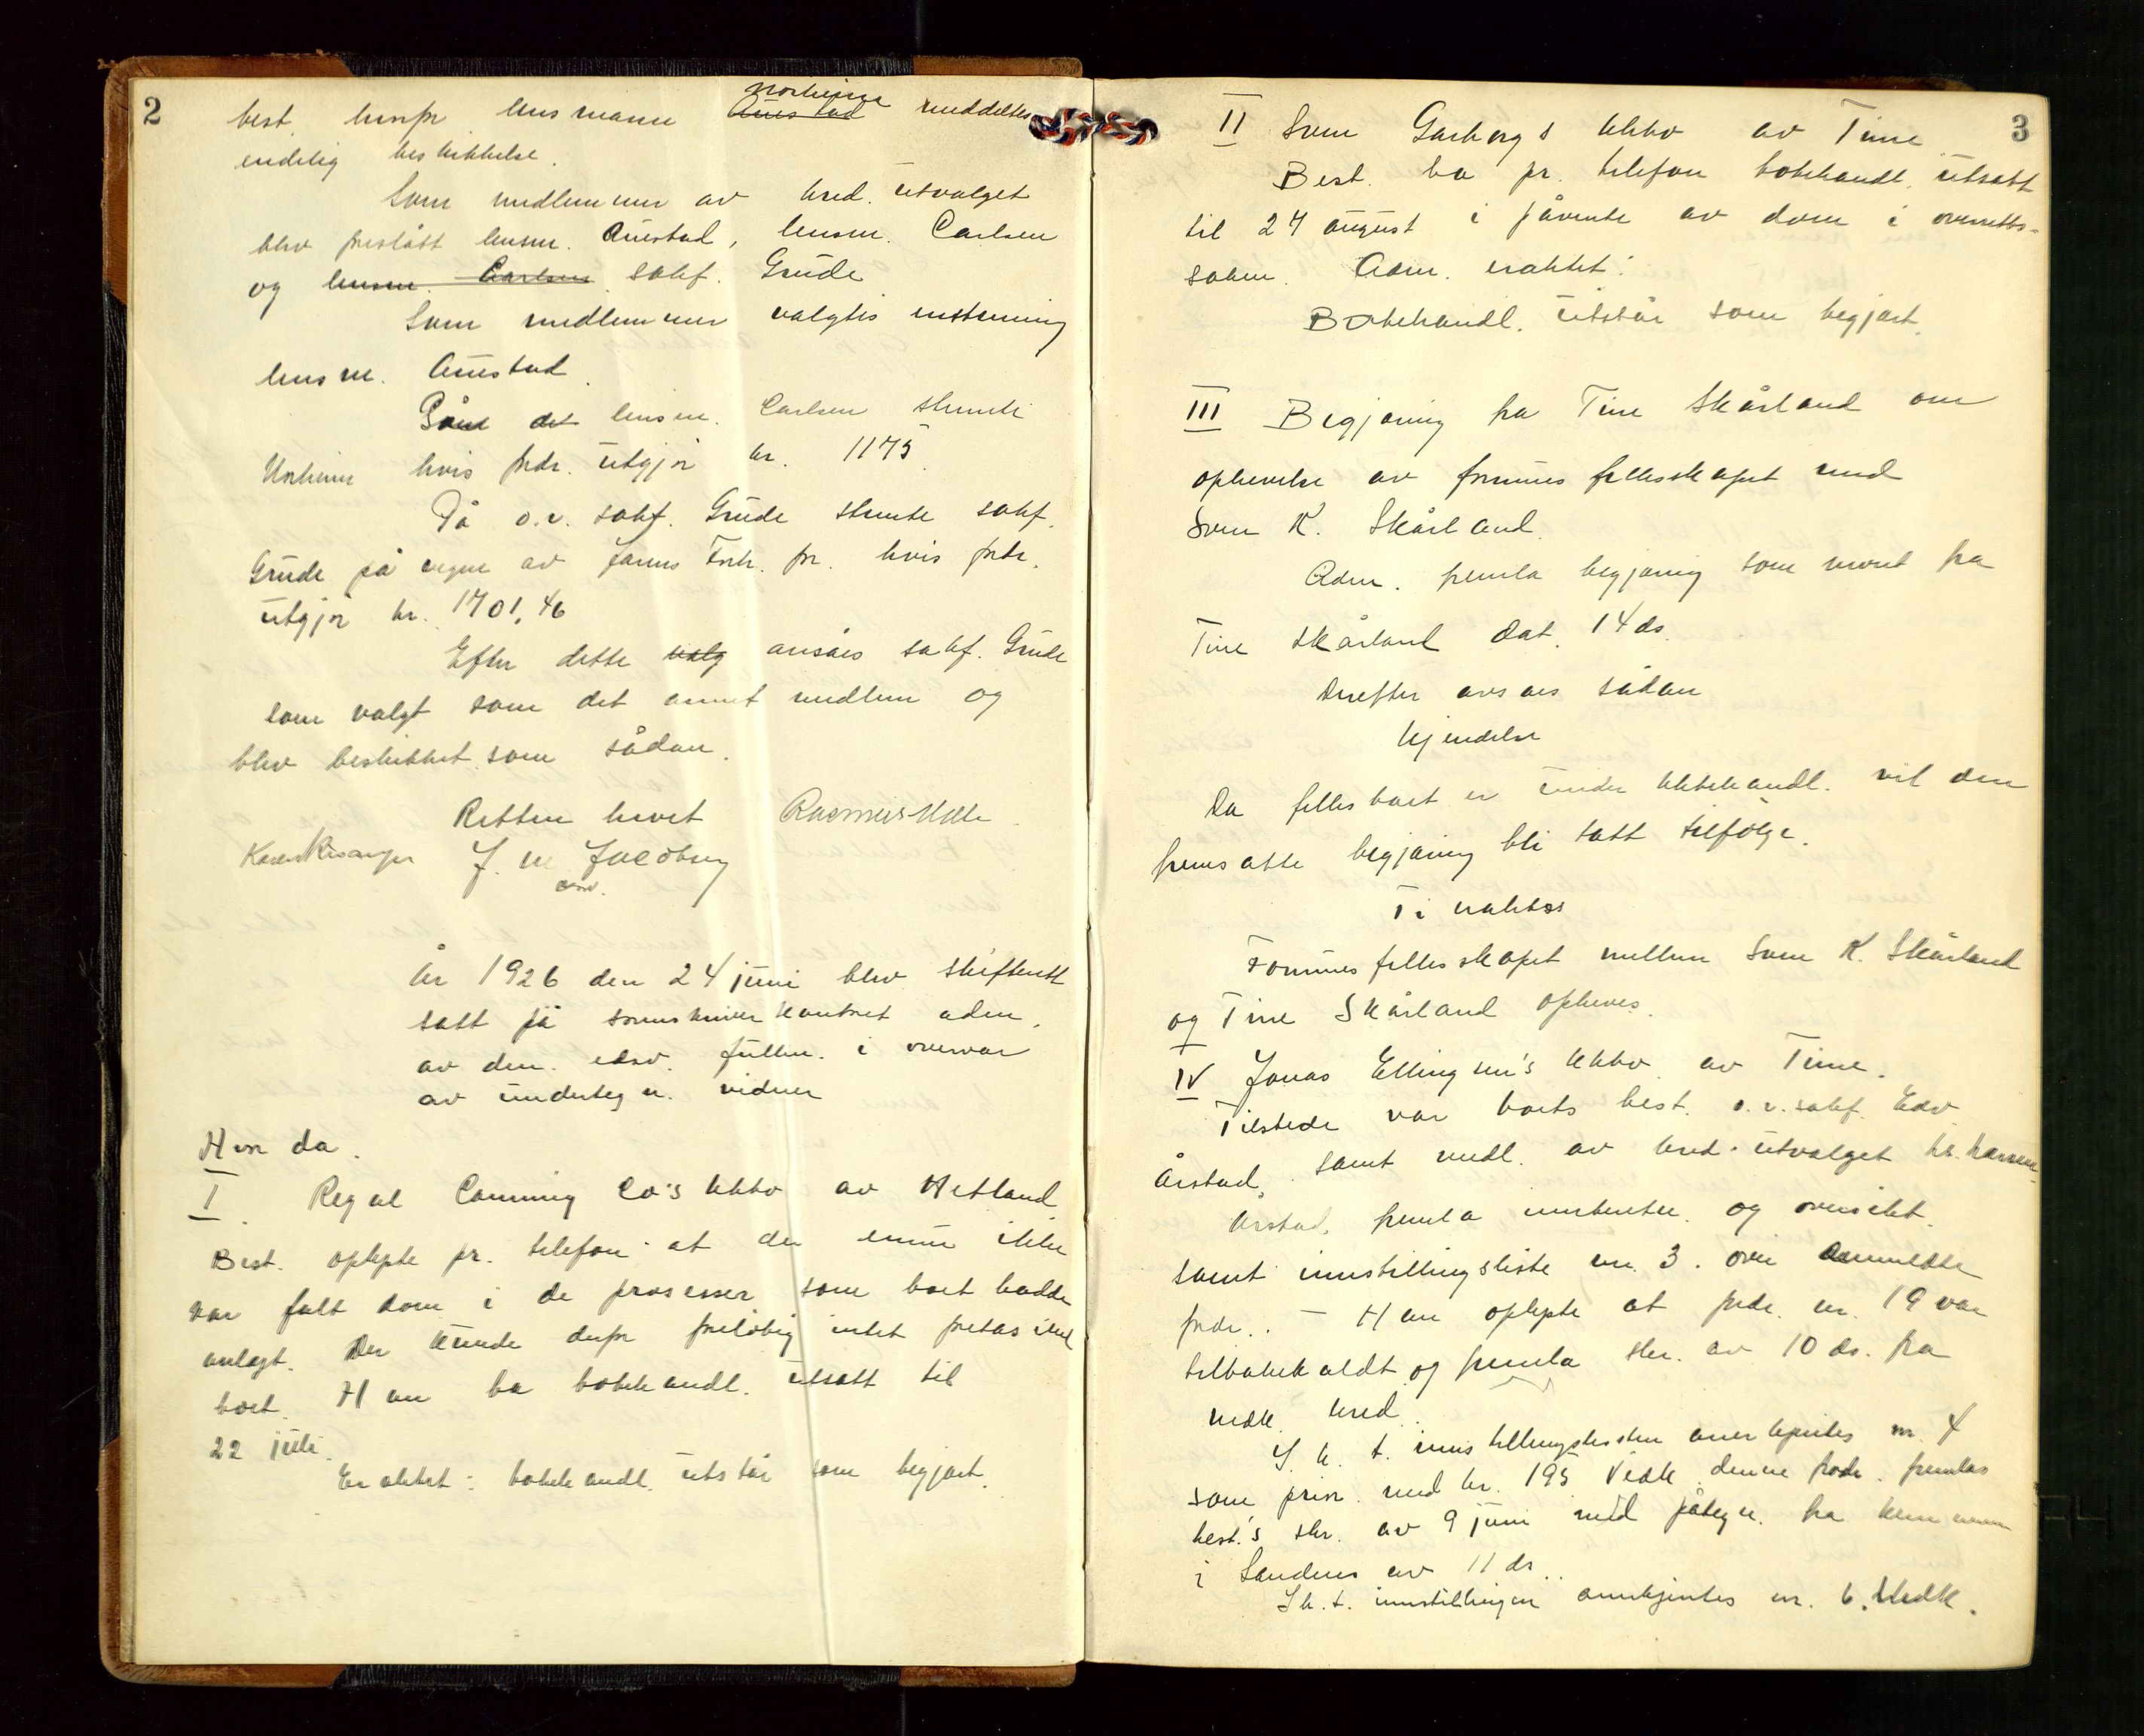 2
best. hvorfor lensmann Norheim ~~Auestad~~ meddeltes
endelig beskikkelse.
Som medlemmer av kred. utvalget
blev foreslått lensm. Auestad, lensm. Carlsen
og ~~lensm. Carlsen~~ sakf. Grude
Som medlemmer valgtes enstemmig
lensm. Auestad.
På det lensm. Carlsen stemte
Norheim hvis fordr. utgjør kr. 1175
På o.r. sakf. Grude stemte sakf.
Grude på vegne av Forr. for. hvis fordr.
utgjør kr. 1701,46
Efter dette ~~valg~~ ansåes sakf. Grude
som valgt som det annet medlem og
blev beskikket som sådan.
Retten hevet Rasmus
J. M. Jacobsen
År 1926 den 24 juni blev skifterett
satt på sorenskriverkontoret adm.
av den edsv. fullm. i overvær
av undertegn. vidner
Hvor da.
I Regal Canning Co's kkbo av Hetland
Best. oplyste pr. telefon at der ennu ikke
var falt dom i de prosesser som boet hadde
anlagt. Der kunde derfor foreløbig intet foretas i
boet. Han ba bobehandl. utsatt til
22 juli.
Eraktet: bobehandl. utstår som begjært.
3
II Sven Garborgs kkbo av Time
Best. ba pr. telefon bobehandl. utsatt
til 27 august i påvente av dom i overretts-
saken. Adm. eraktet:
Bobehandl. utstår som begjært.
III Begjæring fra Tine Skårland om
ophevelse av formues fellesskapet med
Sven K. Skårland.
Adm. fremla begjæring som nevnt fra
Tine Skårland dat. 14 ds.
Derefter avsaes sådan
kjendelse
Da fellesboet er under kkbehandl. vil den
fremsatte begjæring bli tatt tilfølge.
Ti eraktes
Formuesfellesskapet mellem Sven K. Skårland
og Tine Skårland opheves.
IV Jonas Ellingsen's kkbo av Time.
Tilstede var boets best. o.r.sakf. Edv
Årstad, samt medl. av kred. utvalget hr.
Årstad, fremla inventar og oversikt.
samt innstillingsliste nr. 3. over anmeldte
fordr.. – Han oplyste at fordr. nr. 19 var
tilbakekaldt og fremla skr. av 10 ds. fra
vedk. kred.
I h. t. innstillingslisten anerkjentes nr. 4
som prior. med kr. 195 Vedk. denne fordr. fremlas
best.'s skr. av 9 juni med påtegn. fra
i Sandnes av 11 ds..
I h. t. innstillingen annkjentes nr. 6. Vedk.